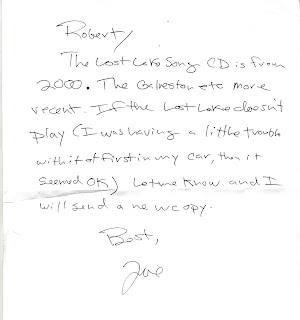 Robert/
The Lost Lake Song CD is from
2000. The Galveston etc more
recent. If the Lost Lake doesn't
play (I was having a little trouble
with it at first in my car, then it
seemed OK) Let me know and I
will send a new copy.
Best,